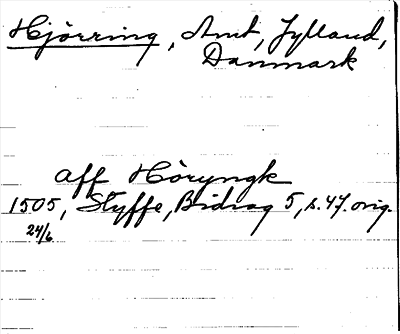 Hjörring, Amt, Jylland,
Danmark
aff Höryngk
1505, Styffe, Bidrag 5, s. 47. orig.
24/6